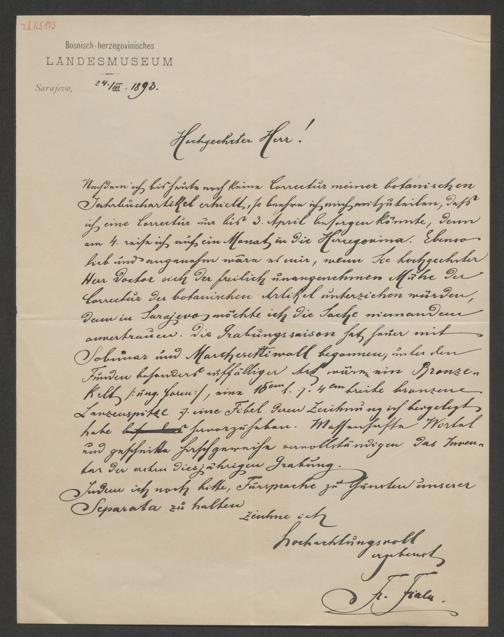 Bosnisch-herzegovinisches
LANDESMUSEUM
Sarajevo, 24./III. 1893.
Hochgeehrter Herr!
Nachdem ich bis heute noch keine Correctur meiner botanischen
Jahrbuchartikel erhielt, so beehre ich mich mitzuteilen, daß
ich eine Correctur nur bis 3. April besorgen könnte, denn
am 4. reise ich auf ein Monat in die Hercegovina. Ebenso
lieb und angenehm wäre es mir, wenn Sie hochgeehrter
Herr Doctor sich der freilich unangenehmen Mühe der
Correctur der botanischen Artikel unterziehen würden,
denn in Sarajevo möchte ich die Sache niemandem
anvertrauen. Die Grabungssaison hat heuer mit
Sobunar und begonnen, unter den
Funden besonders Art wären ein Bronze-
Kelt, eine 18 cm l. 4 cm breite bronzene
Lanzenspitze eine Fibel deren Zeichnung ich beigelegt
habe hervorzuheben. Massenhafte Wirtel
und geschnitzte Hirschgeweihe vervollständigen das Inven-
tar der ersten diesjährigen Grabung.
Indem ich noch bitte, Fürsprache zu Gunsten unserer
Separata zu halten
zeichne ich
hochachtungsvoll
ergebenst
Fr. Fiala.